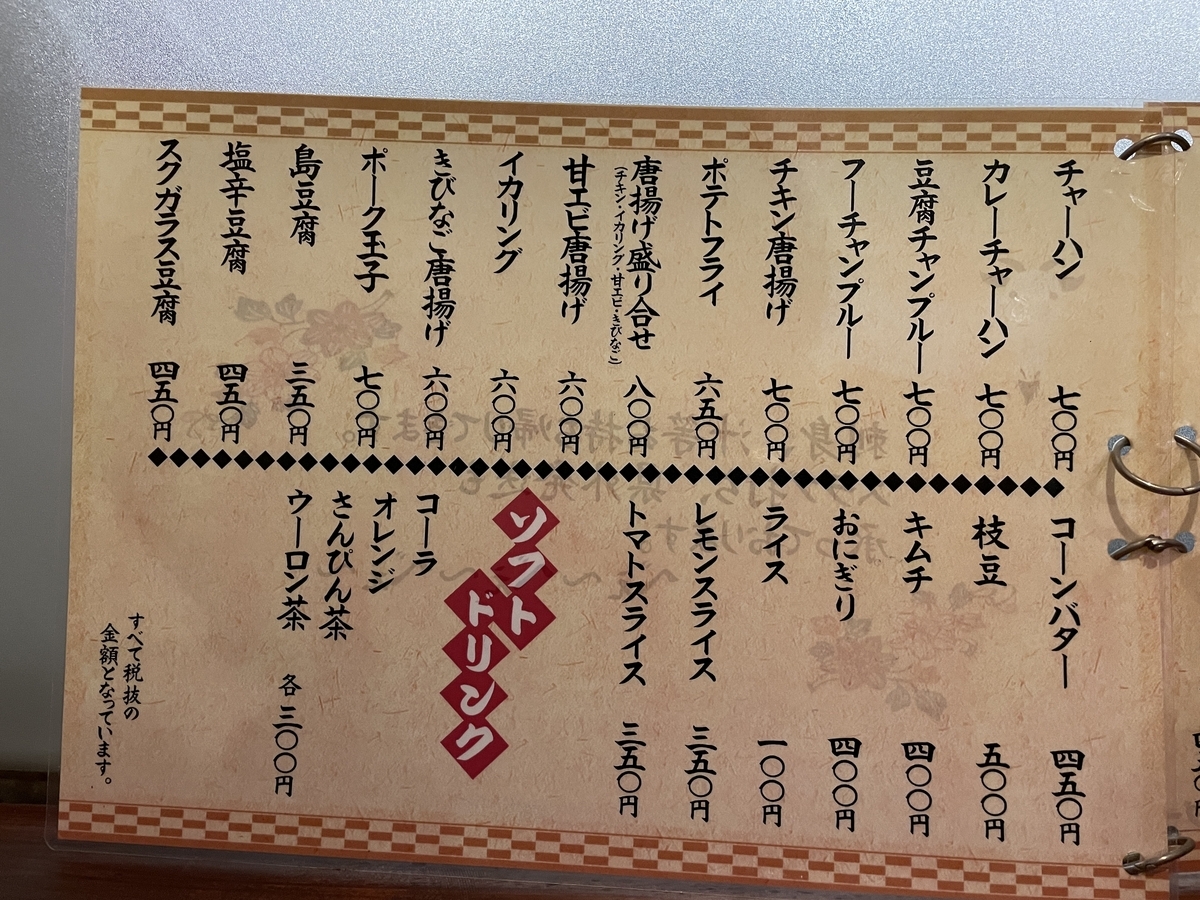 チャーハン 七〇〇円
カレーチャーハン 七〇〇円
豆腐チャンプルー 七〇〇円
フーチャンプルー 七〇〇円
チキン唐揚げ 七〇〇円
ポテトフライ 六五〇円
唐揚げ盛り合せ 八〇〇円
(チキン・イカリング・甘エビ・きびなご)
甘エビ唐揚げ 六〇〇円
イカリング 六〇〇円
きびなご唐揚げ 六〇〇円
ポーク玉子 七〇〇円
島豆腐 三五〇円
塩辛豆腐 四五〇円
スクガラス豆腐 四五〇円
コーンバター 四五〇円
枝豆 五〇〇円
キムチ 四〇〇円
おにぎり 四〇〇円
ライス 一〇〇円
レモンスライス 三五〇円
トマトスライス 三五〇円
ソフト
ドリンク
コーラ
オレンジ
さんぴん茶
ウーロン茶 各 三〇〇円
すべて税抜の
金額となっています。